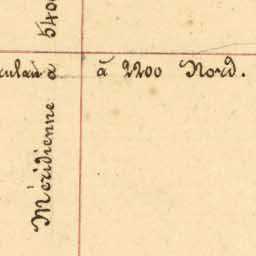 à 2200 Nord.
Méridienne 540